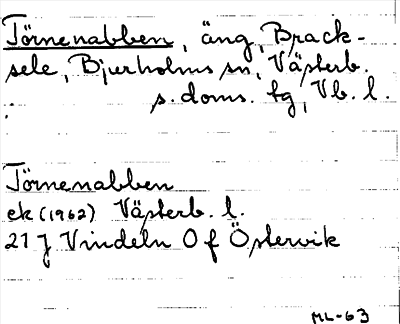 Törnenabben, äng, Brack-
sele, Bjurholms sn, Västerb.
s. doms. tg, Vb. l.
Törnenabben
ek (1962) Västerb. l.
21 J Vindeln Of Östervik
ML-63